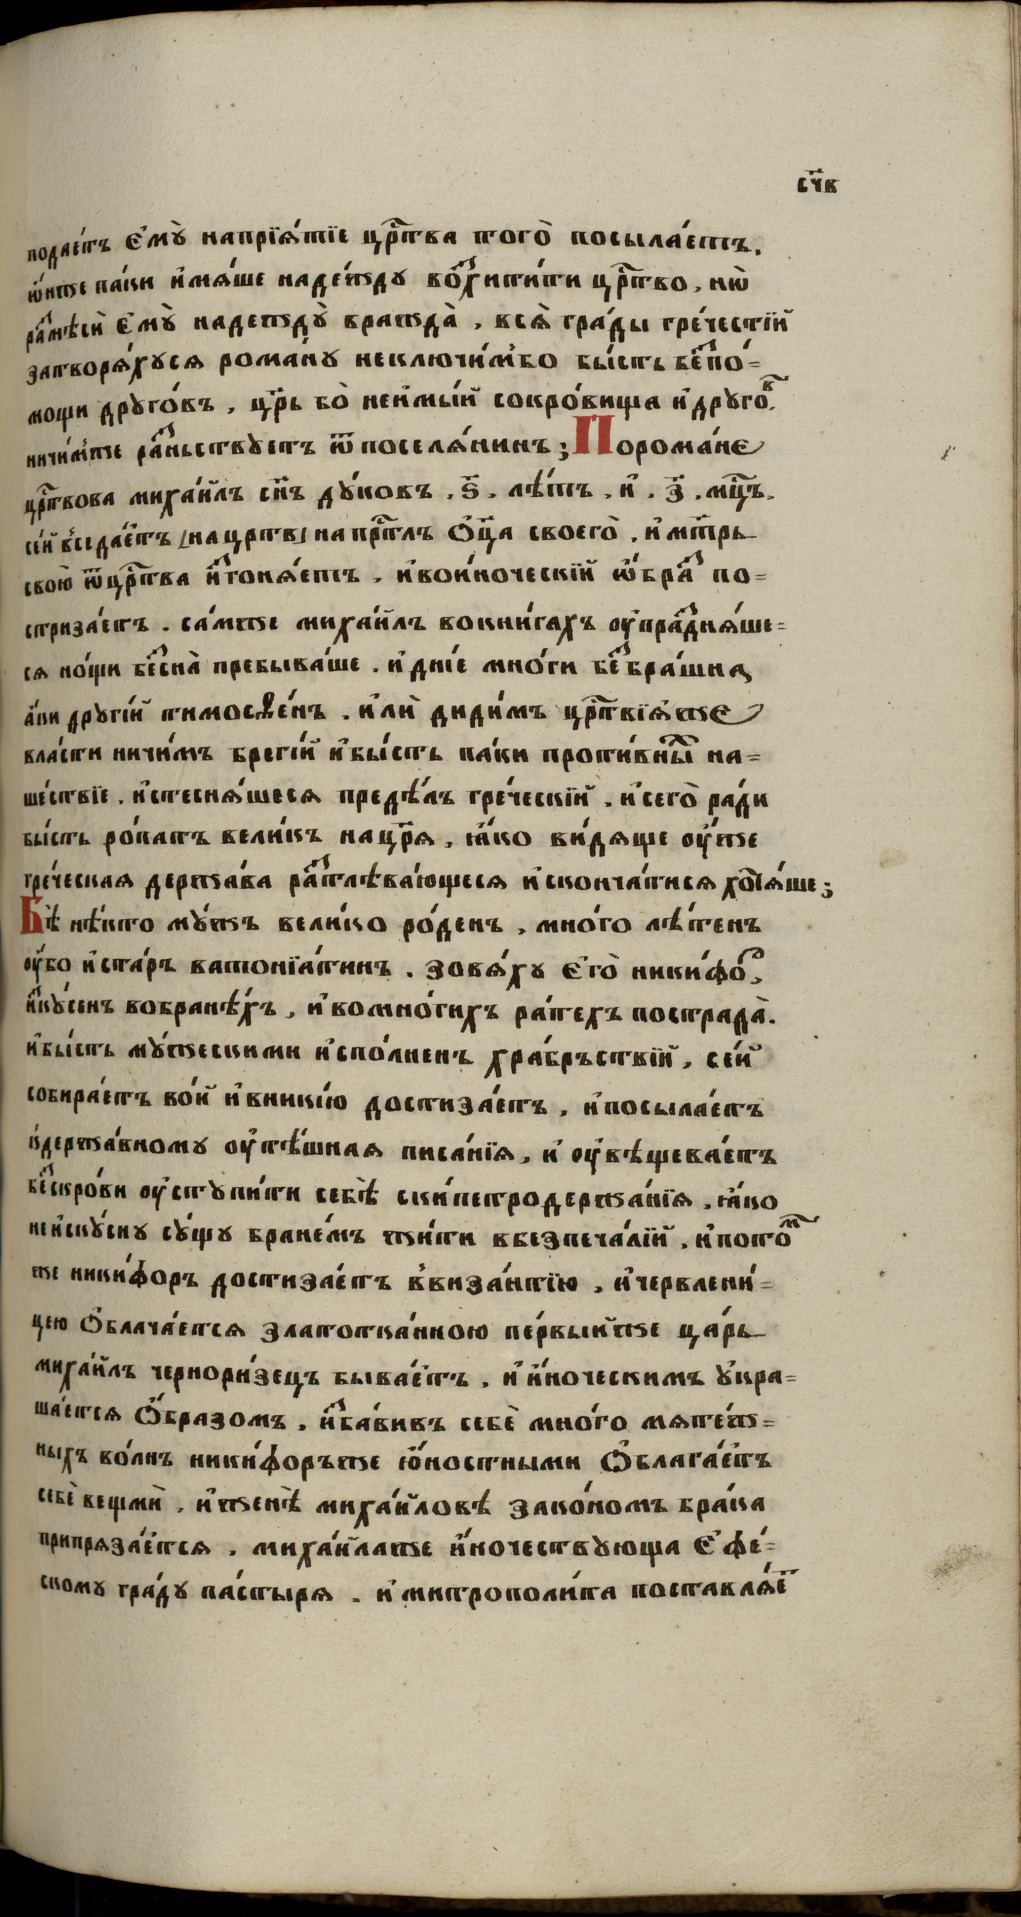 сч҃в
подае́тъ є҆мꙋ̀ напрїѧ́тїе цр҃тва того̀ посыла́етъ.
ѡ҆́нже па́ки и҆мѧ́ше наде́ждꙋ во́схити́ти цр҃тво, нѡ
размѣ́си є҆мꙋ̀ надеждꙋ̀ вражда̀, всѧ̀ гра́ды гре́честїй
затворѧ́хꙋсѧ рома́нꙋ неключи́мбо бы́сть беспо́=
мощи дрꙋго́въ, цр҃ь бо̀ неи҆мы́й сокро́вища и҆дрꙋго́в.
ничи́мже ра́зньствꙋетъ ѿпоселѧ́нинъ; Порома́не
цр҃твова миха́илъ сн҃ъ дꙋ́ковъ, ѕ҃, лѣ́тъ, и҆, з҃, мц҃ъ.
се́й всѣда́етъ [на црт҃в] напртⷭ҇лъ о҆ц҃а своего̀, и҆мт҃рь
свою̀ ѿцр҃тва и҆згонѧ́етъ, и҆вои́ноческїй ѡ҆́браз по=
стриза́етъ. са́мже миха́илъ вокни́гахъ оу҆пражднѧ́ше=
сѧ но́щи бессна̀ пребыва́ше. и҆дні́е мно́ги безбра́шна
а҆́ки дрꙋгі́й тимоѳе́нъ. и҆лѝ диди́мъ цр҃твїѧ́же
вла́сти ничи́мъ брегі́й и҆бы́сть па́ки проти́вны́х на=
ше́ствїе, и҆стеснѧ́шесѧ предѣ́лъ гре́ческїй, и҆сего̀ ра́ди
бы́сть ро́патъ вели́къ нацр҃ѧ, ꙗ҆́ко ви́дѧще оу҆́же
гре́ческаѧ держа́ва растлѣва́ющесѧ и҆сконча́тисѧ хотѧ́ше;
Бѣ̀ нѣ́кто мꙋ́жъ вели́ко ро́денъ, мно́го лѣ́тенъ
оу҆́бо и҆ста́ръ ватонїа́тинъ. зовѧ́хꙋ є҆го̀ ники́фор,
и҆скꙋ́сенъ вобранѣ́хъ, и҆вомно́гихъ ра́техъ пострада̀.
и҆бы́сть мꙋ́жескими и҆спо́лненъ хра́бръствїй, се́й
собира́етъ во́й и҆вники́ю достиза́етъ, и҆посыла́етъ
кдержа́вномꙋ оу҆тѣ́шнаѧ писа́нїѧ, и҆ оу҆вѣщева́етъ
бескро́ви оу҆стꙋпи́ти себѣ̀ ски́петродержа́нїѧ, ꙗ҆́ко
неи҆скꙋ́снꙋ сꙋ́щꙋ бране́мъ жи́ти вбезпеча́лїй, и҆пото́м
же ники́форъ достиза́етъ в҆виза́нтїю, и҆червлени́=
цею ѻ҆блача́етсѧ златотка́нною пе́рвыйже ца́рь
миха́илъ чернори́зецъ быва́етъ, и҆ и҆́ноческимъ ᲂу҆кра=
ша́етсѧ ѻ҆́бразомъ, и҆зба́вивъ себѐ мно́го мѧте́ж=
ныхъ во́лнъ ники́форъже ю҆́ностными ѻ҆блага́етъ
себѐ вещмѝ, и҆женѣ̀ миха́иловѣ зако́номъ бра́ка
припрѧза́етсѧ, миха́илаже и҆́ночествꙋюща є҆фе́=
скомꙋ гра́дꙋ па́стырѧ, и҆митрополи́та поставлѧ́ет